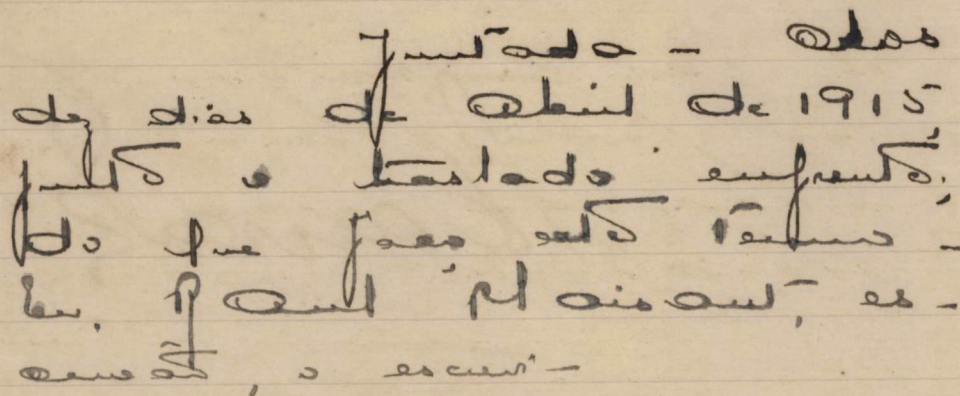 Juntada - Aos
dez dias de Abril de 1915,
junto o traslado enfrente;
do que faço este termo -
Eu, Raul Plaisant, es-
crivão, o escrevi -